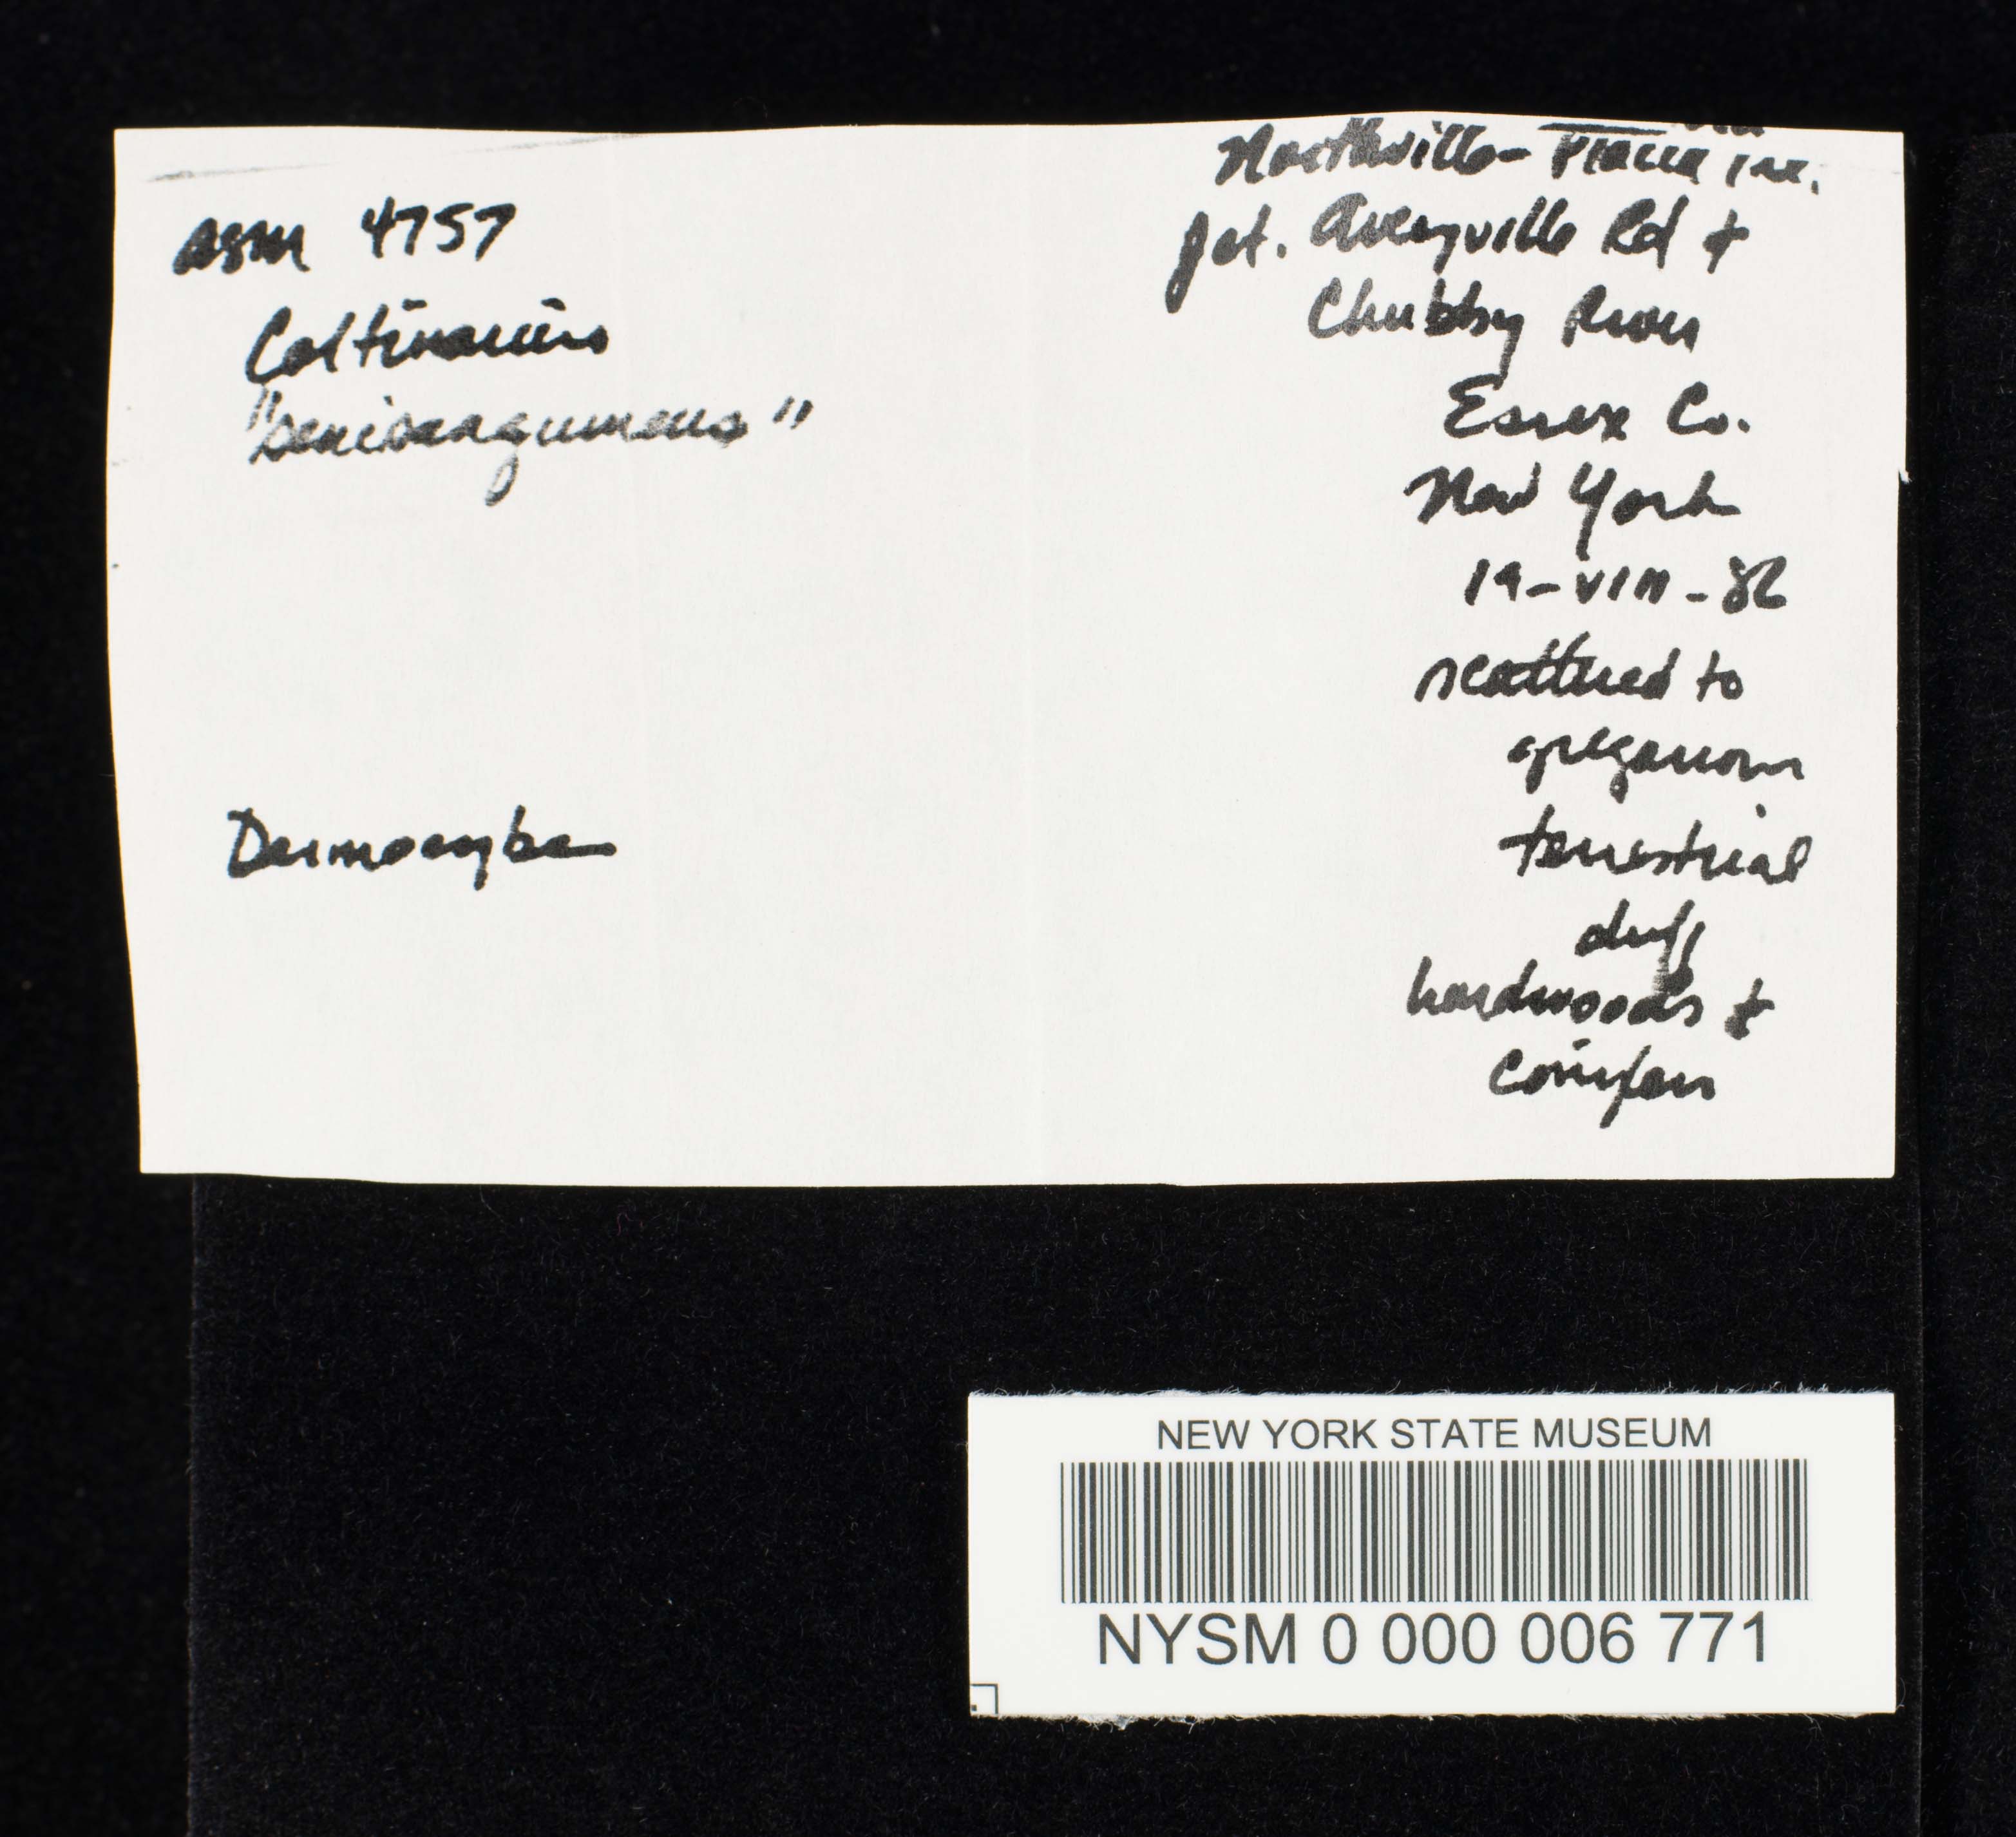 asm 4757
Cortinarius
"
"
Dermocybe
Northville-
Jct. Averyville Rd &
Chubby River
Essex Co.
New York
19-VIII-86
scattered to
gregarious
terrestrial
duff
hardwoods &
conifers
NEW YORK STATE MUSEUM
NYSM 0 000 006 771